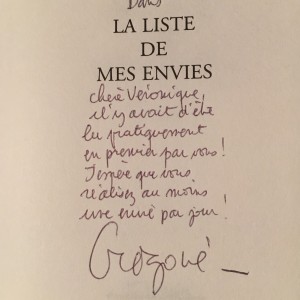 Dans
LA LISTE
DE
MES ENVIES
chère Véronique,
il y avait d'être
lu pratiquement
en premier par vous !
J'espère que vous
réalisez au moins
une envie par jour !
Grégoire